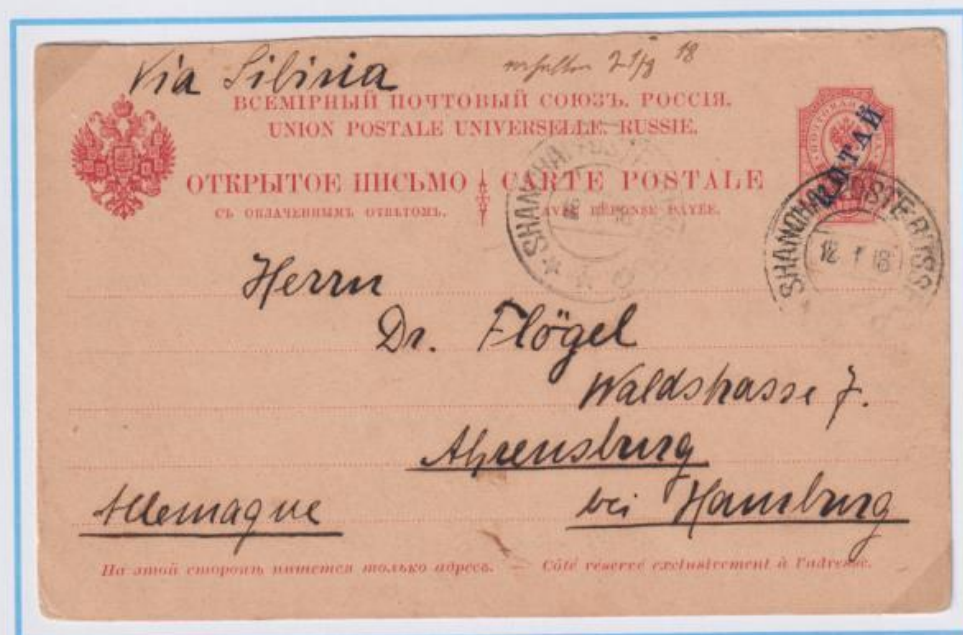 Via Sibiria
18
ВСЕМІРНЫЙ ПОЧТОВЫЙ СОЮЗЪ. РОССІЯ.
UNION POSTALE UNIVERSELLE. RUSSIE.
ПОЧТОВАЯ
КИТАЙ
ОТКРЫТОЕ ПИСЬМО CARTE POSTALE
СЪ ОПЛАЧЕННЫМЪ ОТВѢТОМЪ. AVEC RÉPONSE PAYÉE.
SHANGHAI POSTE
SHANGHAI POSTE RUSSE
Herrn
Dr. Flögel
Waldstrasse 7.
Ahrensburg
Allemagne bei Hamburg
На этой сторонѣ пишется только адресъ. — Côté réservé exclusivement à l'adresse.